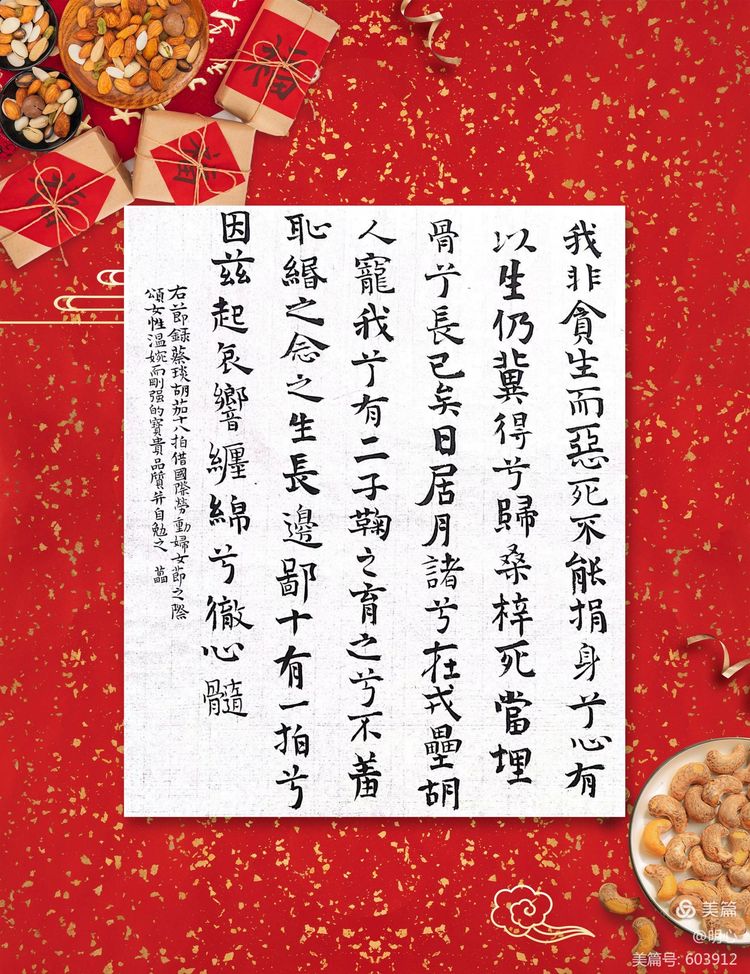 福
福
福
我非貪生而惡死不能捐身兮心有
以生仍冀得兮歸桑梓死當埋
骨兮長已矣日居月諸兮在戎壘胡
人寵我兮有二子鞠之育之兮不
恥緡之念之生長邊鄙十有一拍兮
因兹起哀響纏綿兮徹心髓
右節録蔡琰胡茄十八拍借國際勞動婦女節之際
頌女性溫婉而剛强的寶貴品質并自勉之
美篇
@明心
美篇号: 603912